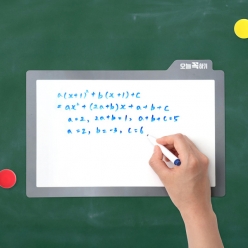 오늘 꼭 하기
a(x+1)²+b(x+1)+c
=ax²+(2a+b)x+a+b+c
a=2, 2a+b=1, a+b+c=5
a=2, b=-3, c=6.